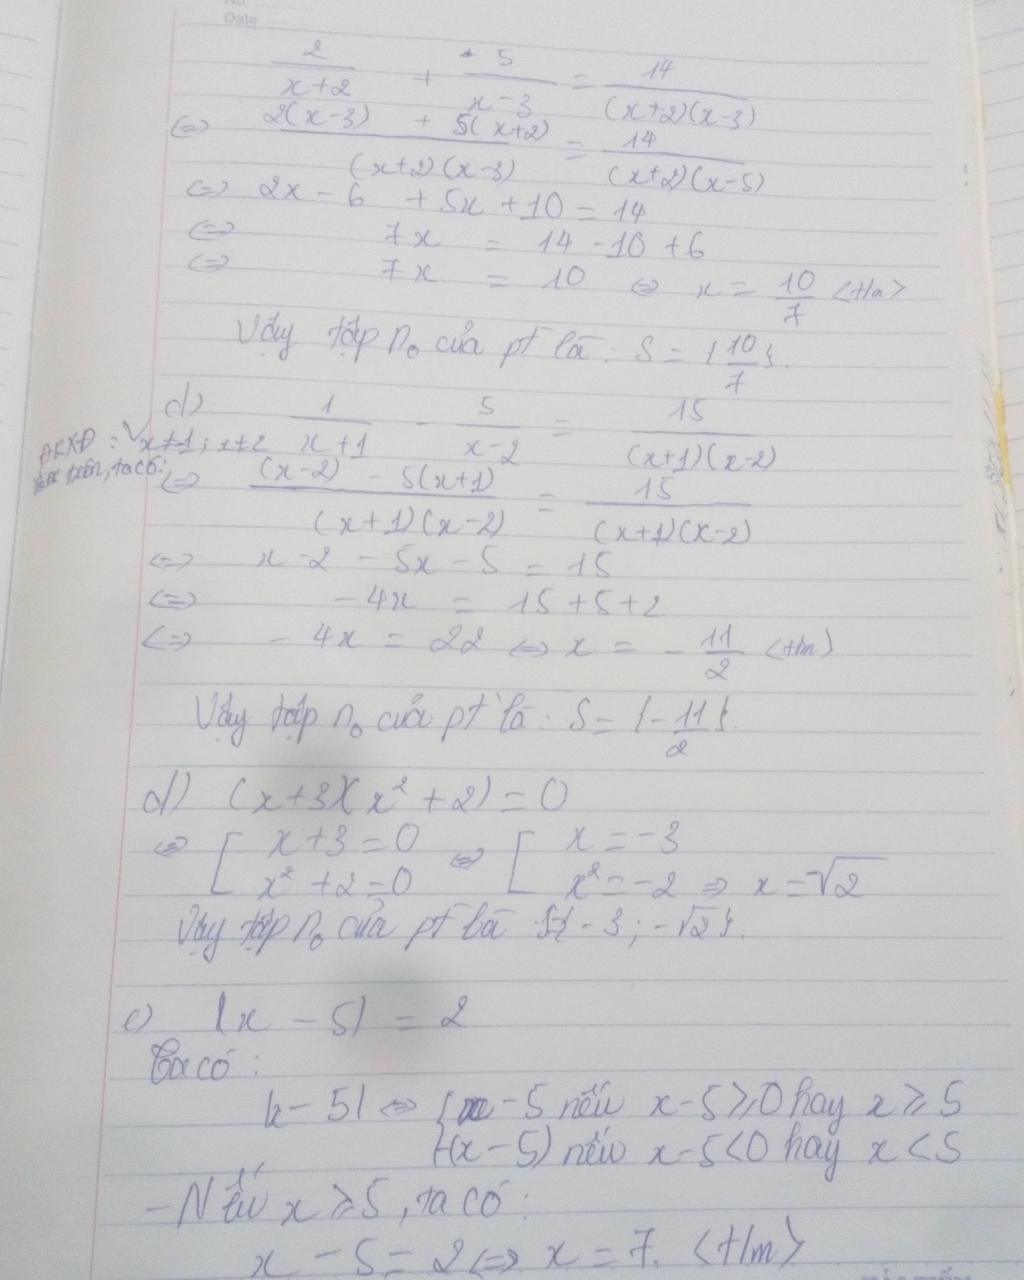 No.
Date
2/(x+2) + 5/(x-3) = 14/((x+2)(x-3))
⇔ (2(x-3) + 5(x+2))/((x+2)(x-3)) = 14/((x+2)(x-5))
⇔ 2x - 6 + 5x + 10 = 14
⇔ 7x = 14 - 10 + 6
⇔ 7x = 10 ⇔ x = 10/7 <t/m>
Vậy tập n₀ của pt là: S = {10/7}.
d) 1/(x+1) - 5/(x-2) = 15/((x+1)(x-2))
ĐKXĐ: x≠-1; x≠2
trên, ta có:
⇔ ((x-2) - 5(x+1))/((x+1)(x-2)) = 15/((x+1)(x-2))
⇔ x - 2 - 5x - 5 = 15
⇔ -4x = 15 + 5 + 2
⇔ -4x = 22 ⇔ x = -11/2 <t/m>
Vậy tập n₀ của pt là: S = {-11/2}.
d) (x+3)(x² + 2) = 0
⇔ [ x + 3 = 0 ⇔ [ x = -3
x² + 2 = 0 x² = -2 ⇒ x = √2
Vậy tập n₀ của pt là S={-3; -√2}.
e) |x - 5| = 2
Ta có:
|x - 5| ⇔ { x - 5 nếu x-5 ≥ 0 hay x ≥ 5
-(x - 5) nếu x-5 < 0 hay x < 5
- Nếu x ≥ 5, ta có:
x - 5 = 2 ⇔ x = 7. <t/m>